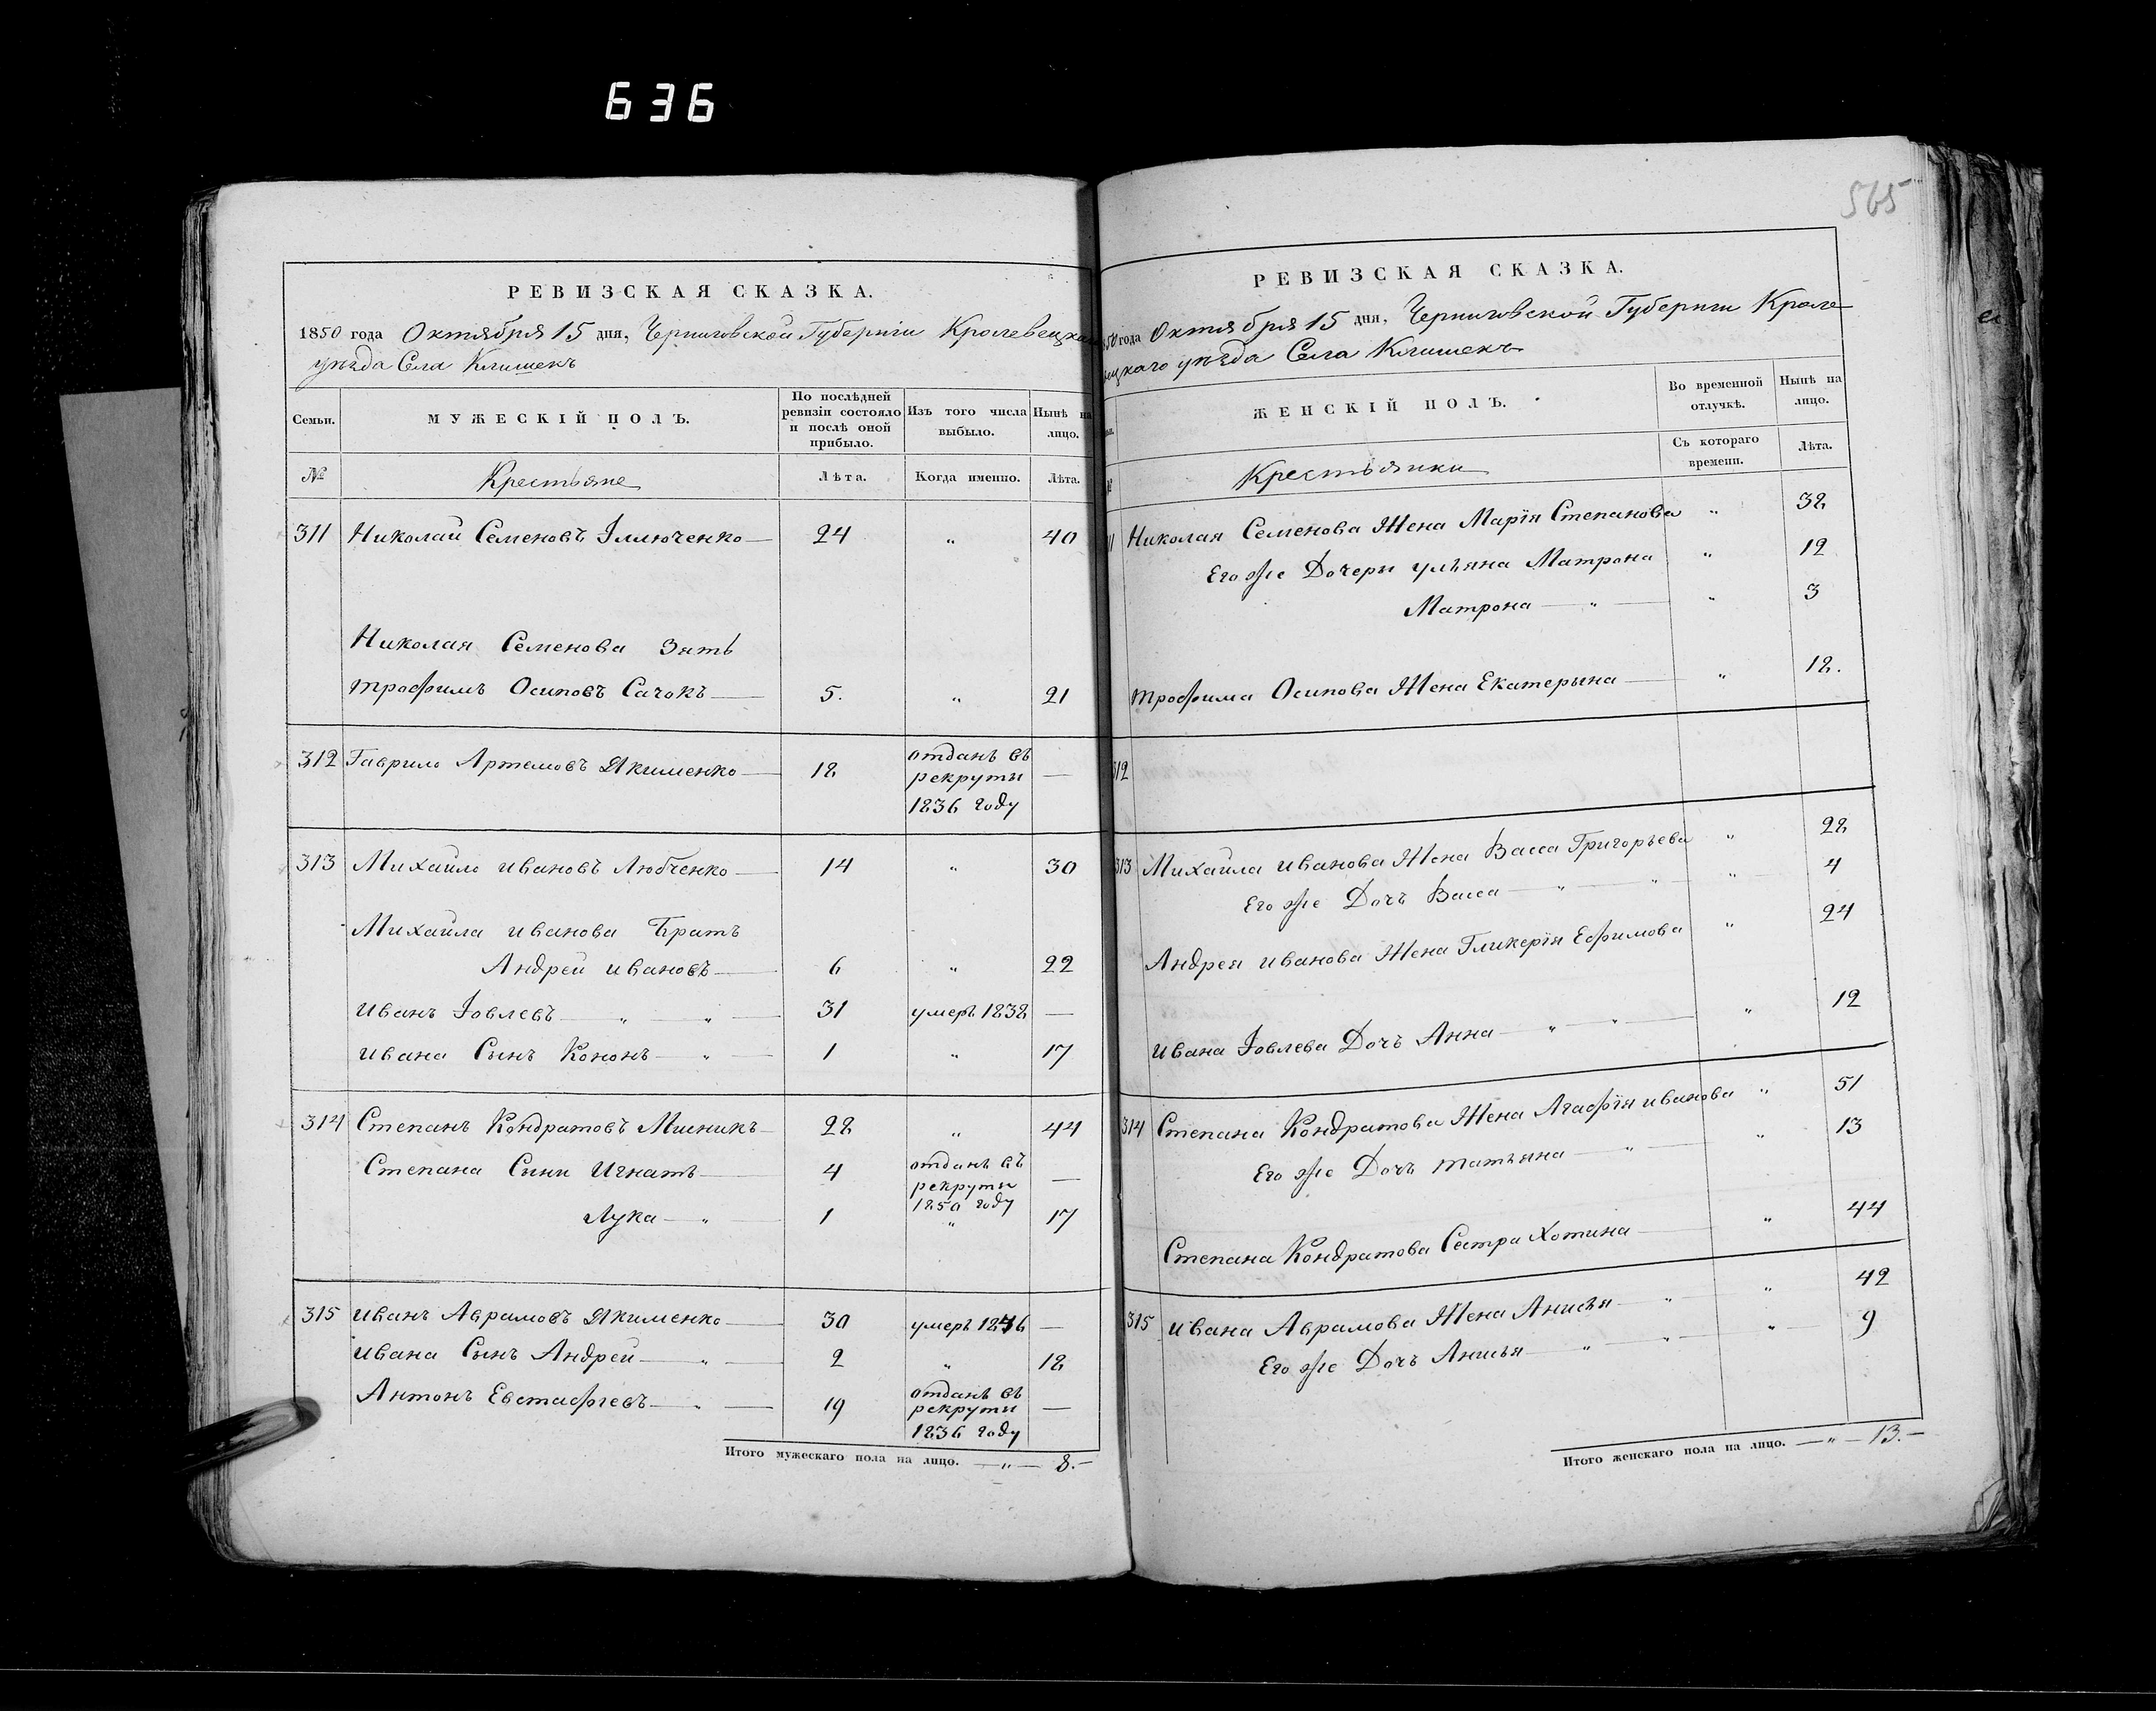 636
565
РЕВИЗСКАЯ СКАЗКА.
1850 года Октября 15 дня, Черниговской Губернiи Кролевецка
уѣзда Села Клишекъ
Семьи. МУЖЕСКІЙ ПОЛЪ. По послѣдней ревизіи состояло и послѣ оной прибыло. Изъ того числа выбыло. Нынѣ на лицо.
№ Крестьяне Лѣта. Когда именно. Лѣта.
311 Николай Семеновъ Iллюченко 24 " 40
Николая Семенова Зять
Трофимъ Осиповъ Сачокъ 5. " 21
312 Гаврило Артемовъ Якименко 18 отданъ въ рекруты 1836 году —
313 Михайло Ивановъ Любченко 14 " 30
Михайла Иванова Братъ
Андрей Ивановъ 6 " 22
Иванъ Iовлевъ " " 31 умеръ 1838 —
Ивана Сынъ Кононъ " 1 " 17
314 Степанъ Кондратовъ Мисникъ 28 " 44
Степана Сыни Игнатъ 4 отданъ въ рекруты 1850 году —
Лука " 1 " 17
315 Иванъ Аврамовъ Якименко 30 умеръ 1846 —
Ивана Сынъ Андрей " 2 " 18
Антонъ Евстафiевъ " 19 отданъ въ рекруты 1836 году —
Итого мужескаго пола на лицо. — " — 8.—
РЕВИЗСКАЯ СКАЗКА.
850 года Октября 15 дня, Черниговской Губернiи Кроле
вецкаго уѣзда Села Клишекъ
ЖЕНСКІЙ ПОЛЪ. Во временной отлучкѣ. Нынѣ на лицо.
Крестьянки Съ котораго времени. Лѣта.
11 Николая Семенова Жена Марiя Степанова " 38
Его же Дочери Ульяна Матрона " 12
Матрона " " 3
Трофима Осипова Жена Екатерына " 18.
312
313 Михайла Иванова Жена Васса Григорьева " 28
Его же Дочь Васса " " " 4
Андрея Иванова Жена Гликерiя Ефимова " 24
Ивана Iовлева Дочь Анна " " " 12
314 Степана Кондратова Жена Агафiя Иванова " 51
Его же Дочь Татьяна " " 13
Степана Кондратова Сестра Хотина " 44
315 Ивана Аврамова Жена Анисья " " 42
Его же Дочь Анисья " " " 9
Итого женскаго пола на лицо. — " — 13.—